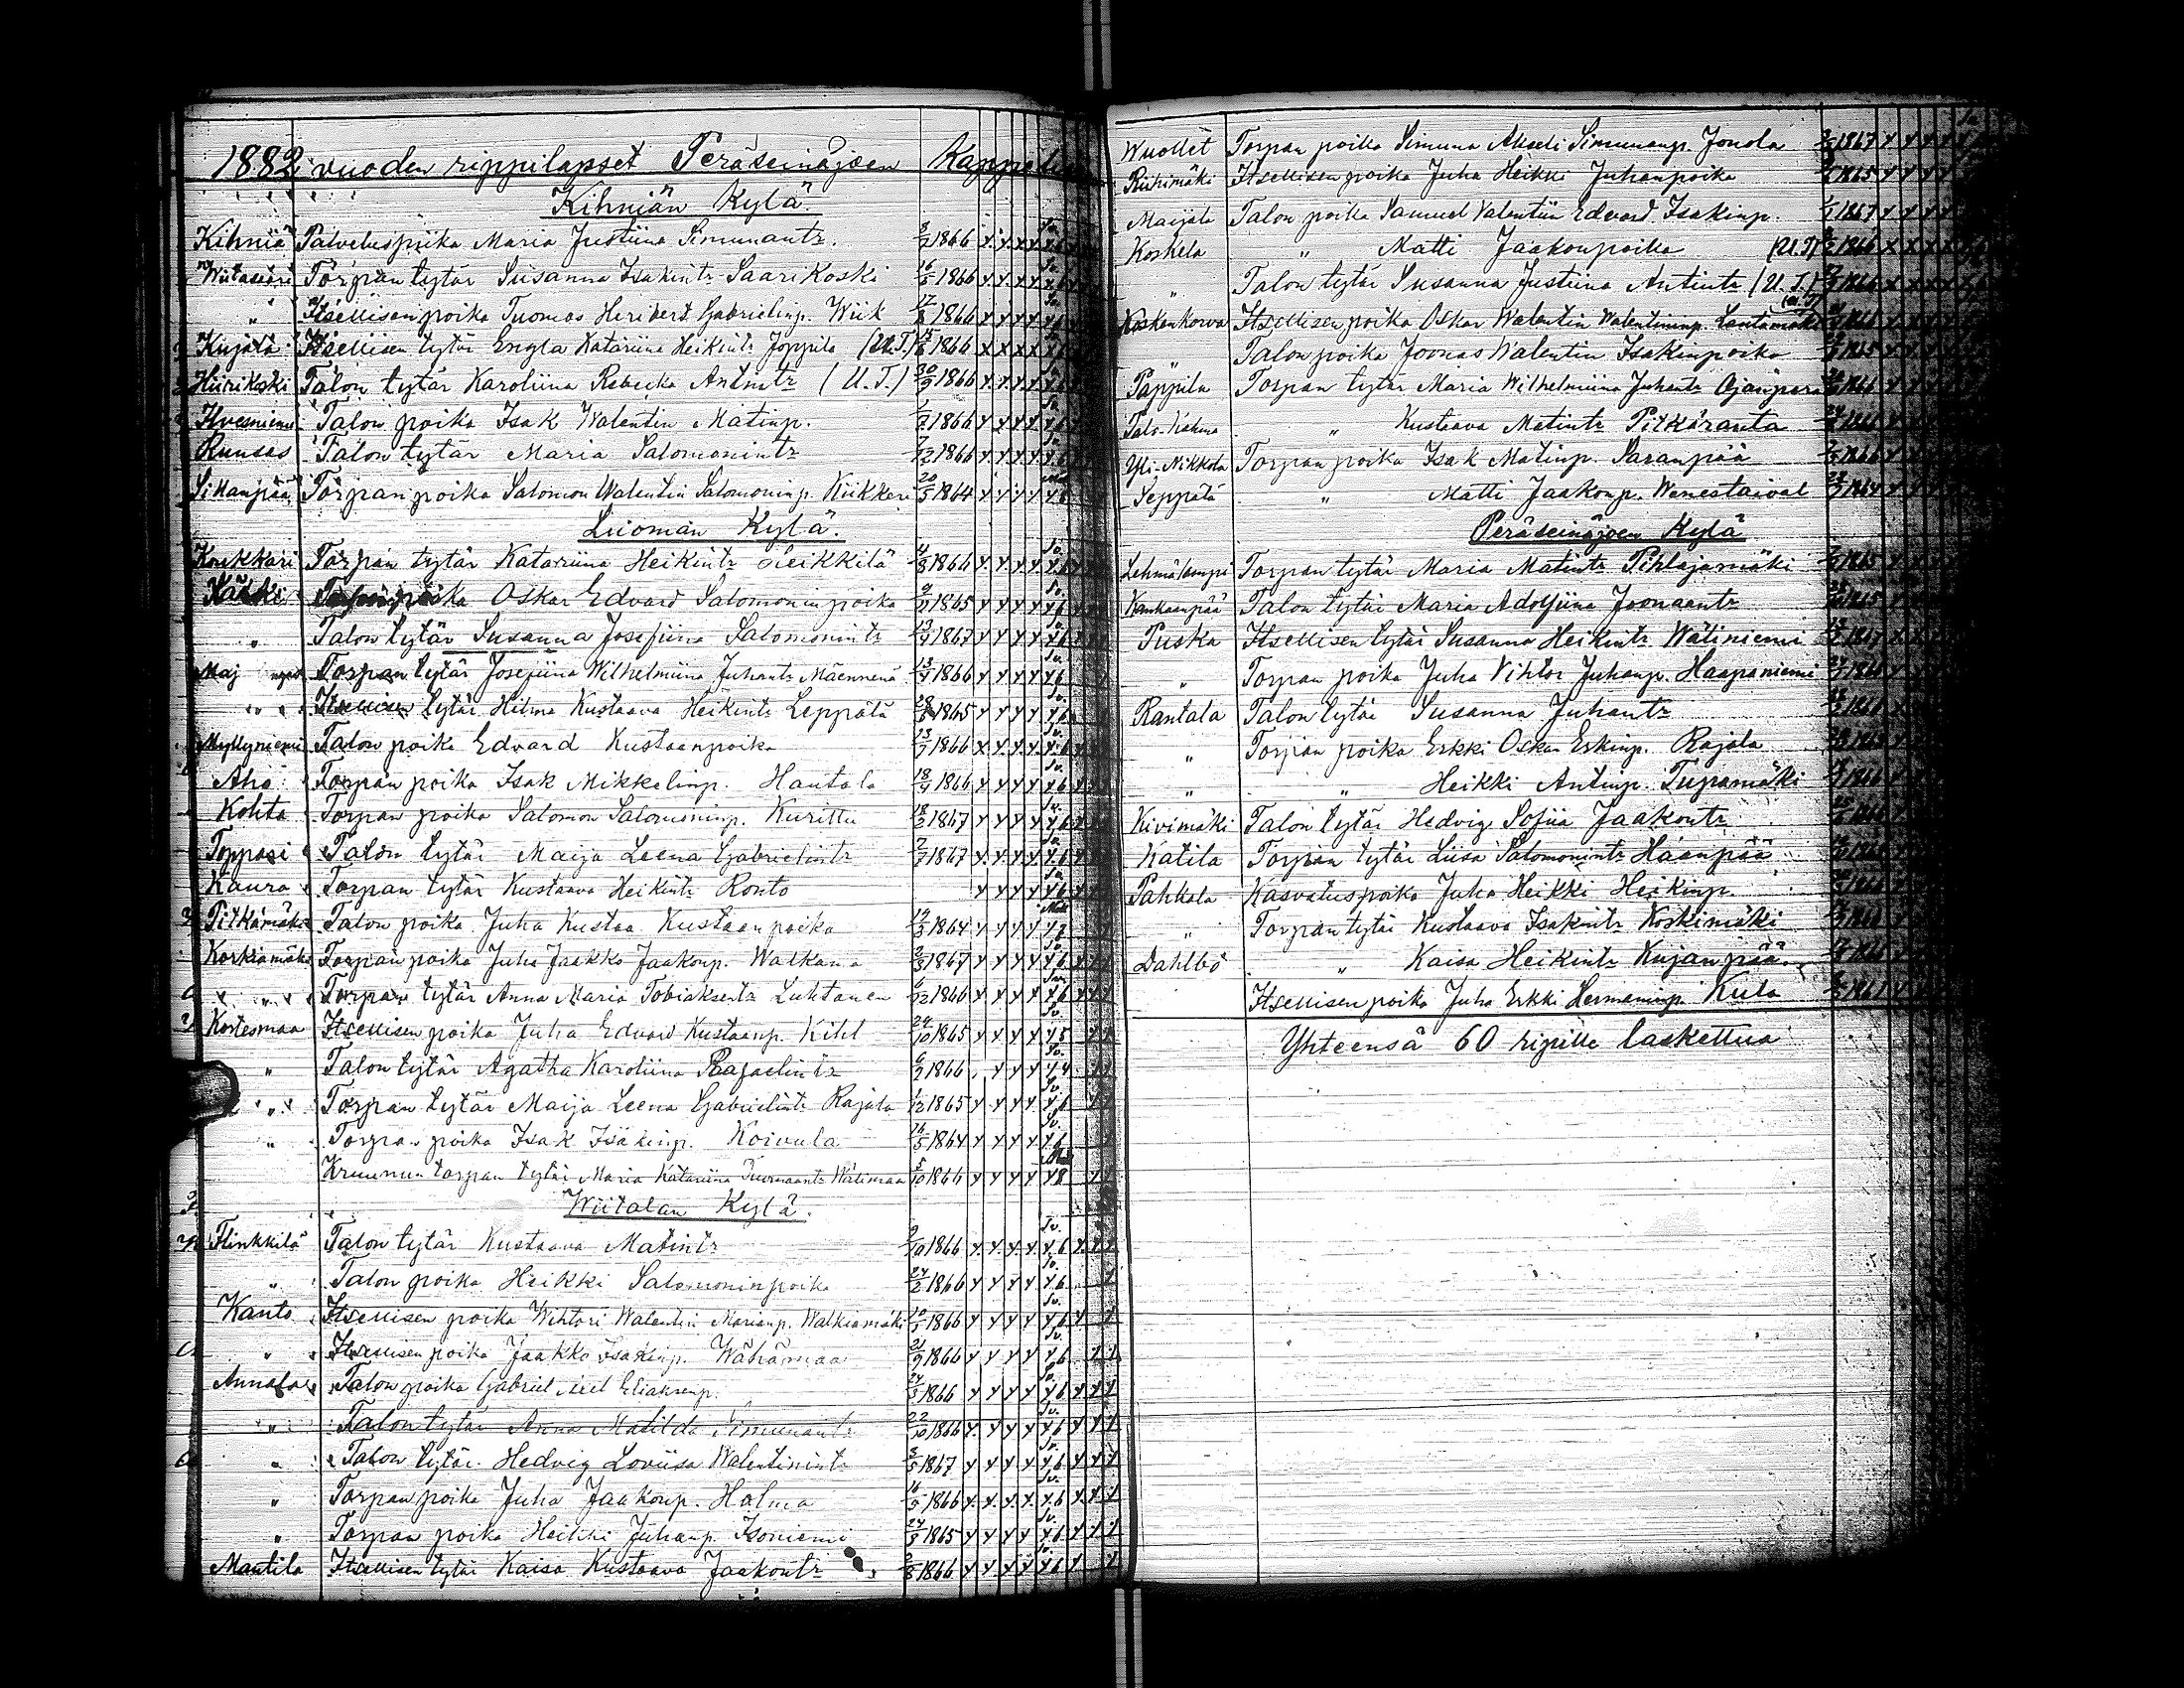 1882 vuoden rippilapset Peräseinäjoen Kappelissa
Kihniän Kylä.
Kihniä Palveluspiika Maria Justiina Simunantr. 1866
Torpan tytär Susanna Isakintr. Saarikoski 16/5 1866
" Itsellisen poika Tuomas Heribert Gabrielinp. Wiik 17/8 1866
Kujala Itsellisen tytär Engla Katariina Heikintr. Joppila (U.T.) 1866
Hiirikoski Talon tytär Karoliina Rebecka Antintr (U.T.) 30/9 1866
Talon poika Isak Walentin Matinp. 1866
Ruusas Talon tytär Maria Salomonintr 7/12 1866
Sillanpää Torpan poika Salomon Walentin Salomoninp. Kiikkeri 20/5 1864
Luoman Kylä.
Koukkari Torpan tytär Katariina Heikintr Heikkilä 4/8 1866
poika Oskar Edvard Salomonin poika 9/11 1865
" Talon tytär Susanna Josefiina Salomonintr 1867
Torpan tytär Josefiina Wilhelmiina Juhantr Mäenneva 13/4 1866
" Itsellisen tytär Hilma Kustaava Heikintr Leppälä 28 1865
Myllyniemi Talon poika Edvard Kustaanpoika 13/7 1866
Aho Torpan poika Isak Mikkelinp. Hautala 18/9 1866
Kohta Torpan poika Salomon Salomoninp. Kurittu 18/2 1867
Toppari Talon tytär Maija Leena Gabrielintr 2/7 1867
Kaura Torpan tytär Kustaava Heikintr Ronto
Pitkämäki Talon poika Juha Kustaa Kustaanpoika 19/3 1864
Korkiamäki Torpan poika Juha Jaakko Jaakonp. Walkama 2/3 1867
" Torpan tytär Anna Maria Tobiaksentr Luhtanen 6/12 1866
Kortesmaa Itsellisen poika Juha Edvard Kustaanp. Kihl 24/10 1865
" Talon tytär Agatha Karoliina Rafaelintr 6/2 1866
" Torpan tytär Maija Leena Gabrielintr Rajala 1/12 1865
" Torpan poika Isak Isakinp. Koivula 16/5 1864
Kruunun torpan tytär Maria Katariina Tuomaantr Wälimaa 5/10 1866
Wiitalan Kylä.
Flinkkilä Talon tytär Kustaava Matintr 9/10 1866
" Talon poika Heikki Salomoninpoika 24/2 1866
Kanto Itsellisen poika Wihtori Walentin Marianp. Walkiamäki 1866
" Itsellisen poika Jaakko Isakinp. Wähämaa 21/9 1866
Annala Talon poika Gabriel Axel Eliaksenp. 24/3 1866
" Talon tytär Anna Matilda Simunantr 22/10 1866
" Talon tytär Hedvig Loviisa Walentinintr 3/5 1867
" Torpan poika Juha Jaakonp. Holma 16/5 1866
" Torpan poika Heikki Juhanp. Isoniemi 24/3 1865
Mantila Itsellisen tytär Kaisa Kustaava Jaakontr 1866
Wuollet Torpan poika Simuna Akseli Simunanp. Jouola 1867
Riihimäki Itsellisen poika Juha Heikki Juhanpoika 1865
Maijala Talon poika Samuel Valentiin Edvard Isakinp. 1867
Koskela " Matti Jaakonpoika (U.T) 1866
" Talon tytär Susanna Justiina Antintr (U.T.) 1866
Koskenkorva Itsellisen poika Oskar Walentin Walentininp. Lautamäki (U.T) 1866
" Talon poika Joonas Walentin Isakinpoika 1865
Pappila Torpan tytär Maria Wilhelmiina Juhantr Ojanperä 1866
" Kustaava Matintr Pitkäranta 1866
Yli-Mikkola Torpan poika Isak Matinp. Saranpää 1866
Seppälä " Matti Jaakonp. Wenestaival 1864
Peräseinäjoen Kylä
Lehmälampi Torpan tytär Maria Matintr Pihlajamäki 1865
Kankaanpää Talon tytär Maria Adolfiina Joonaantr 1865
Puska Itsellisen tytär Susanna Heikintr Wäliniemi 1867
" Torpan poika Juha Vihtor Juhanp. Haapaniemi 1866
Rantala Talon tytär Susanna Juhantr 1866
" Torpan poika Erkki Oskar Erkinp. Rajala
" " Heikki Antinp. Tupamäki 1866
Kivimäki Talon tytär Hedvig Sofiia Jaakontr 1866
Katila Torpan tytär Liisa Salomonintr Haanpää
Pahkala Kasvatuspoika Juha Heikki Heikinp.
" Torpan tytär Kustaava Isakintr Koskimäki
Dahlbo " Kaisa Heikintr Kujanpää.
Itsellisen poika Juha Erkki Hermaninp. Kula
Yhteensä 60 ripille laskettua